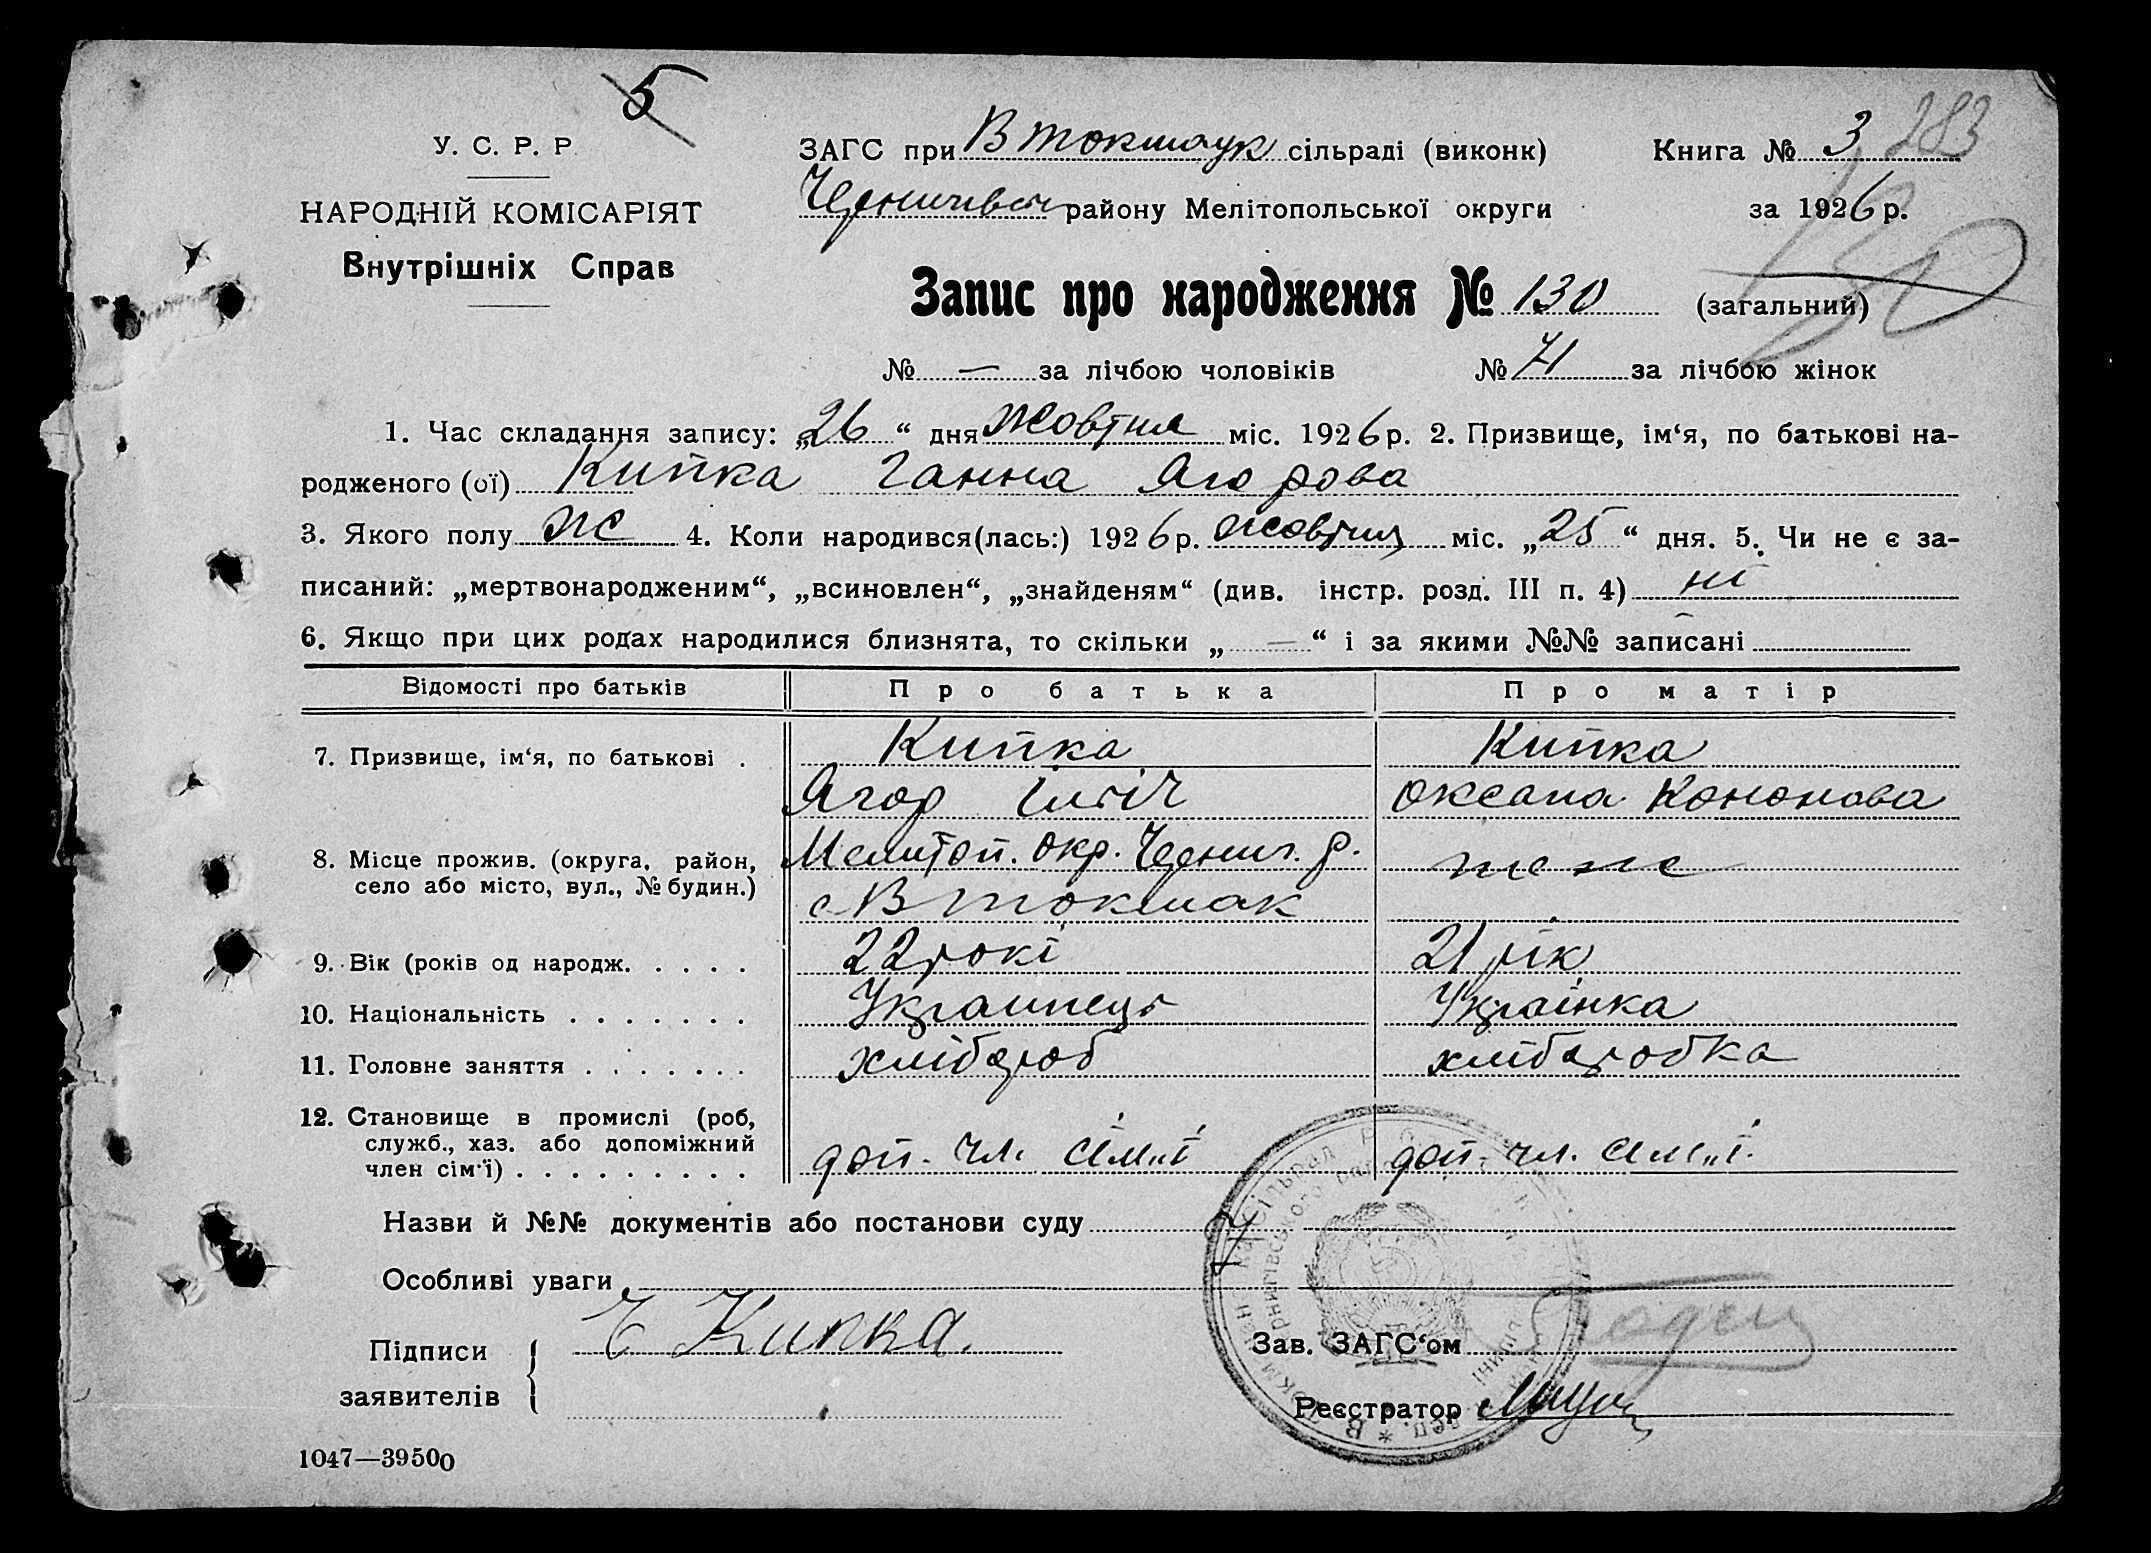 5
283
У. С. Р. Р.
НАРОДНІЙ КОМІСАРІЯТ
Внутрішніх Справ
ЗАГС при В Токмаук сільраді (виконк)
Книга № 3
району Мелітопольської округи
за 1926 р.
130
Запис про народження № 130 (загальний)
№ — за лічбою чоловіків № 71 за лічбою жінок
1. Час складання запису: „26“ дня Жовтня міс. 1926 р. 2. Призвище, ім‘я, по батькові на-
родженого (ої) Кипка Ганна Ягорова
3. Якого полу ж 4. Коли народився(лась:) 1926 р. жовтня міс. „25“ дня. 5. Чи не є за-
писаний: „мертвонародженим“, „всиновлен“, „знайденям“ (див. інстр. розд. III п. 4) ні
6. Якщо при цих родах народилися близнята, то скільки „—“ і за якими №№ записані
Відомості про батьків Про батька Про матір
7. Призвище, ім‘я, по батькові . Кипка Кипка
Ягор Ілліч Оксана Кононова
8. Місце прожив. (округа, район, Мелитоп. окр. Черниг. р. то же
село або місто, вул., № будин.) с В Токмак
9. Вік (років од народж. . . . . 22 рокі 21 рік
10. Національність . . . . . . . Украинець Українка
11. Головне заняття . . . . . . . хлібароб хлібаробка
12. Становище в промислі (роб, служб., хаз. або допоміжний член сім‘ї) . . . . . . . . . доп. чл. сім"ї доп. чл. сім"ї.
Назви й №№ документів або постанови суду
Особливі уваги
Підписи
заявителів
Є Кипка.
Зав. ЗАГС‘ом
Реєстратор
1047—39500